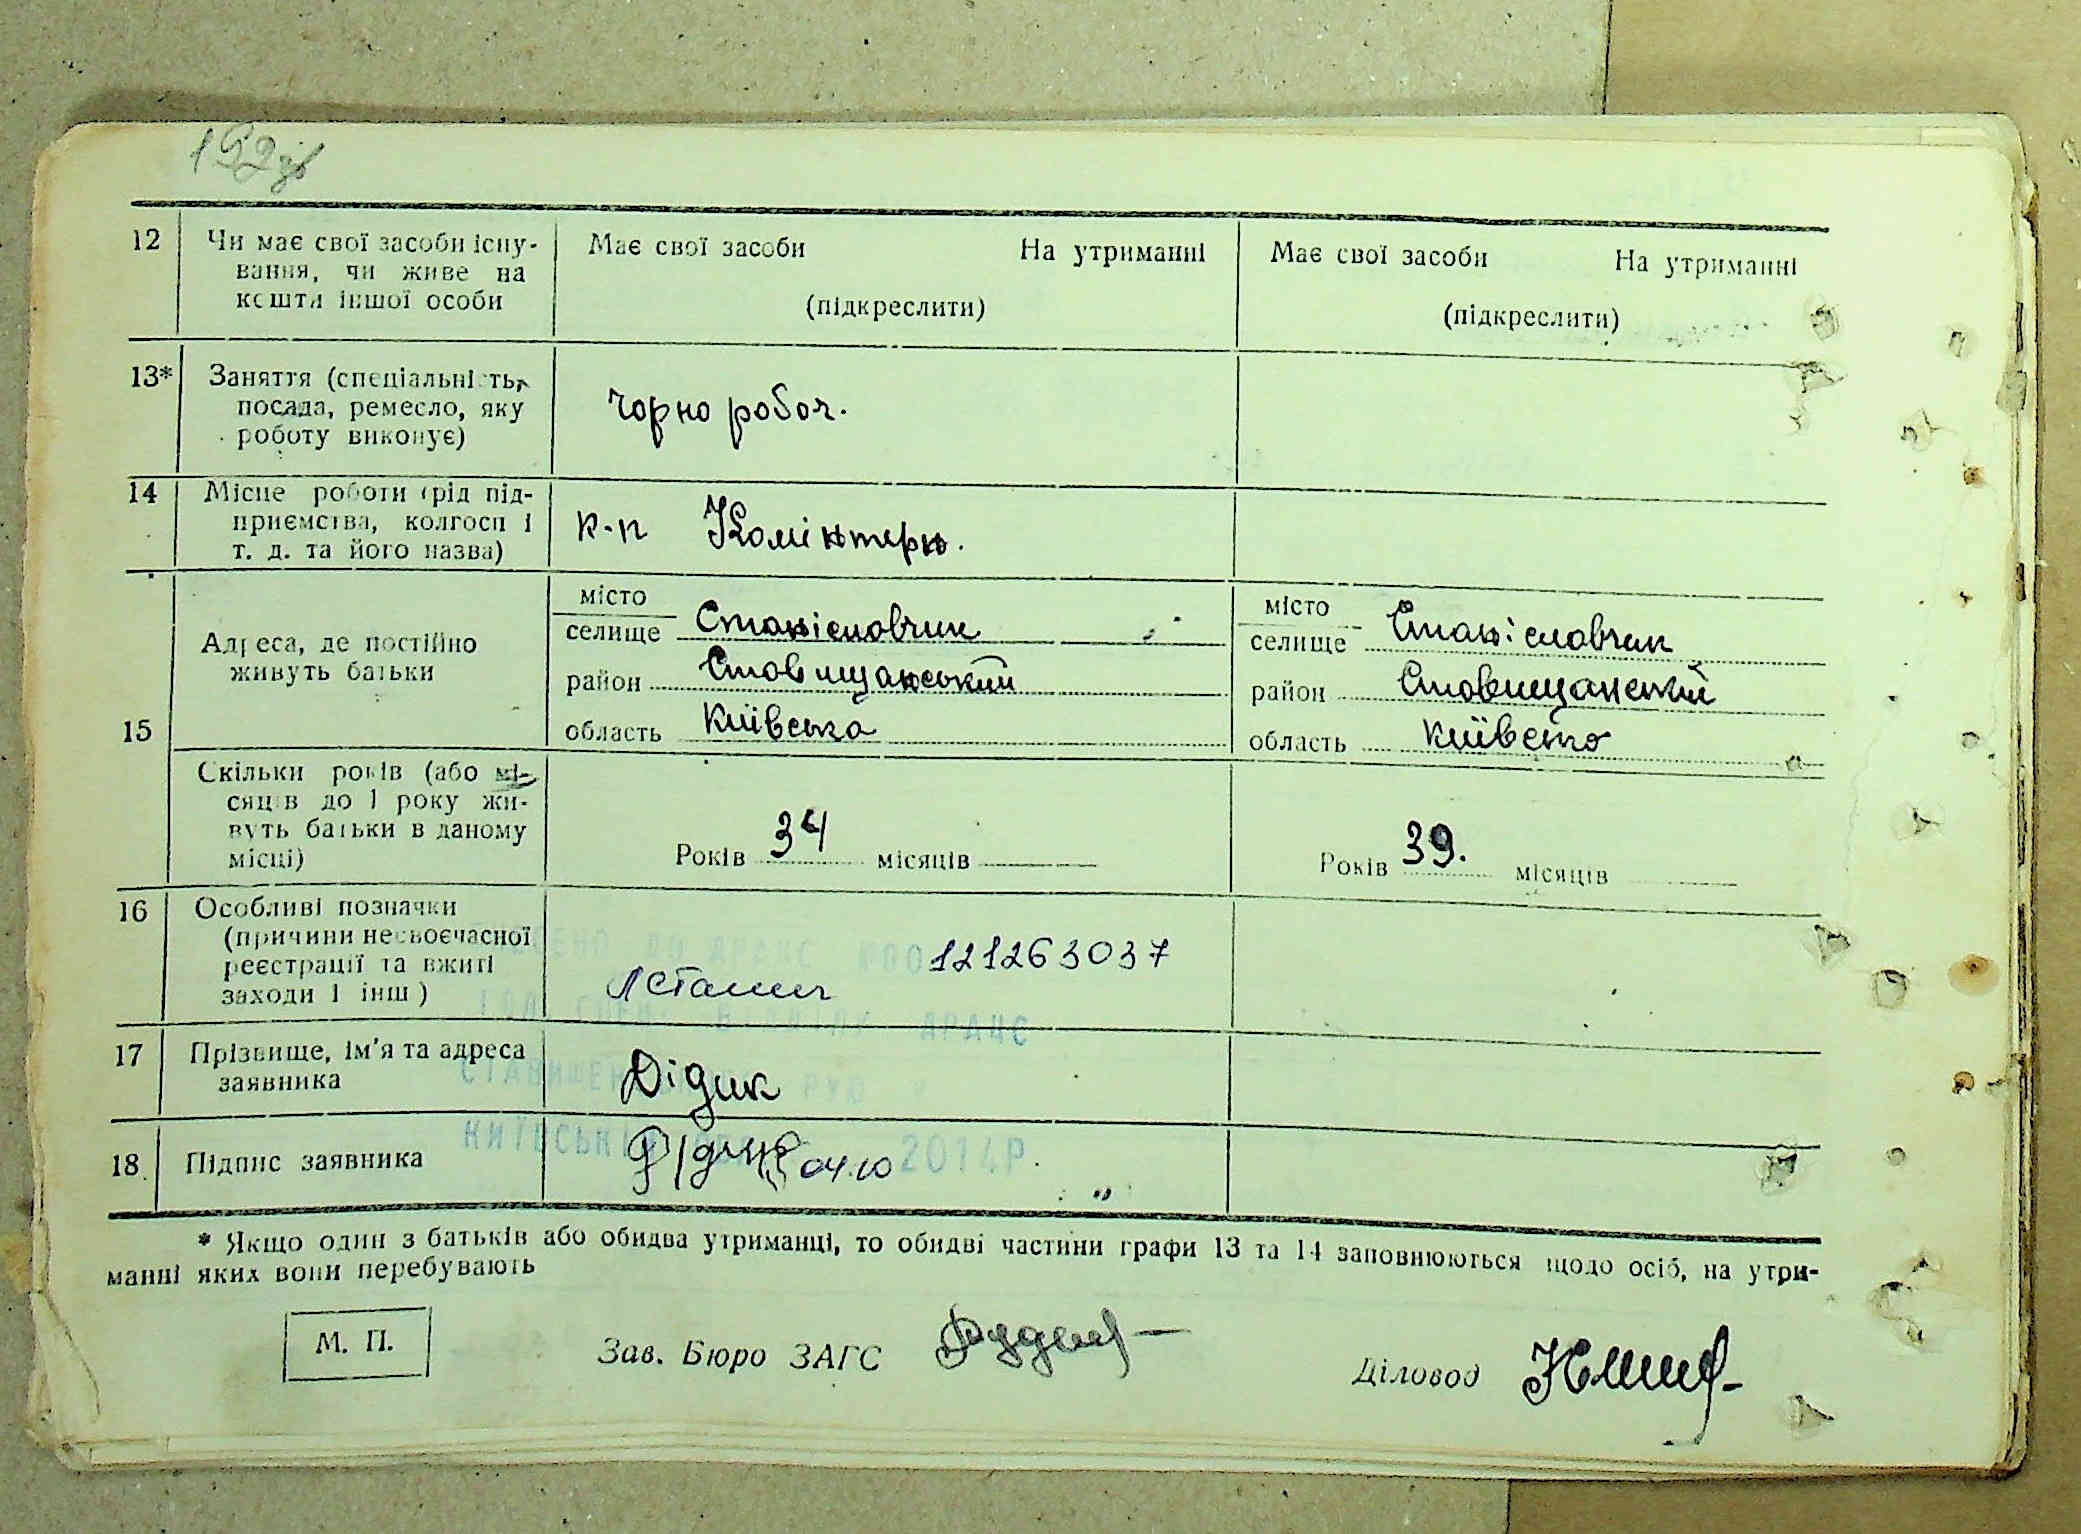 192зв
12 Чи має свої засоби існу- Має свої засоби На утриманні Має свої засоби На утриманні
вання, чи живе на
кошти іншої особи (підкреслити) (підкреслити)
13* Заняття (спеціальність,
посада, ремесло, яку чорно робоч.
роботу виконує)
14 Місце роботи (рід під-
приємства, колгосп і к-п Комінтерн.
т. д. та його назва)
15 Адреса, де постійно
живуть батьки
місто
селище Станіславчик
район Ставищанський
область Київська
місто
селище Станіславчик
район Ставищанский
область Київська
Скільки років (або мі-
сяців до 1 року жи-
вуть батьки в даному
місці)
Років 34 місяців
Років 39. місяців
16 Особливі позначки
(причини несвоєчасної
реєстрації та вжиті
заходи і інш)
ДО ДРАЦС №00121263037
ДРАЦС
17 Прізвище, ім'я та адреса
заявника
Дідик
18. Підпис заявника 04.10 2014Р
* Якщо один з батьків або обидва утриманці, то обидві частини графи 13 та 14 заповнюються щодо осіб, на утри-
манні яких вони перебувають
М. П. Зав. Бюро ЗАГС Діловод